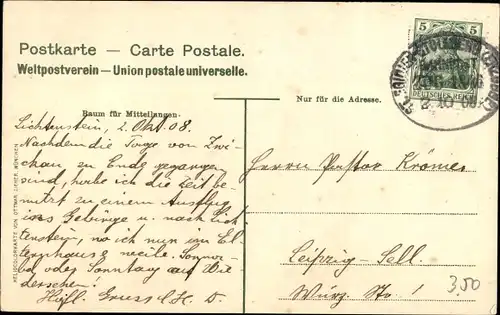 Postkarte — Carte Postale.
Weltpostverein — Union postale universelle.
5 5
DEUTSCHES REICH
Nur für die Adresse.
Raum für Mitteilungen.
Lichtenstein, 2. Okt. 08.
Nachdem die Tage von Zwi-
ckau zu Ende gegangen
sind, habe ich die Zeit be-
nutzt zu einem Ausflug
ins Gebirge u. nach Lich-
tenstein, wo ich nun im El-
ternhause weile. Sonna-
bd. oder Sonntag auf Wie
dersehen!
Hzl. Gruss
Herrn Pastor Krömer
Leipzig-Sell.
Wurz. Str. 1
3,50